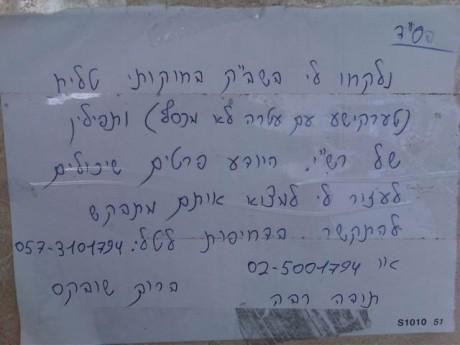 בס"ד
נלקחו לי בשב"ק בחוקותי טלית
(טערקישע עם עטרה לא מכסף) ותפילין
של רש"י. היודע פרטים שיכולים
לעזור לי למצוא אותם מתבקש
להתקשר בדחיפות לטל': 057-3101794
או 02-5001794
תודה רבה ברוך שובקס
S1010 51